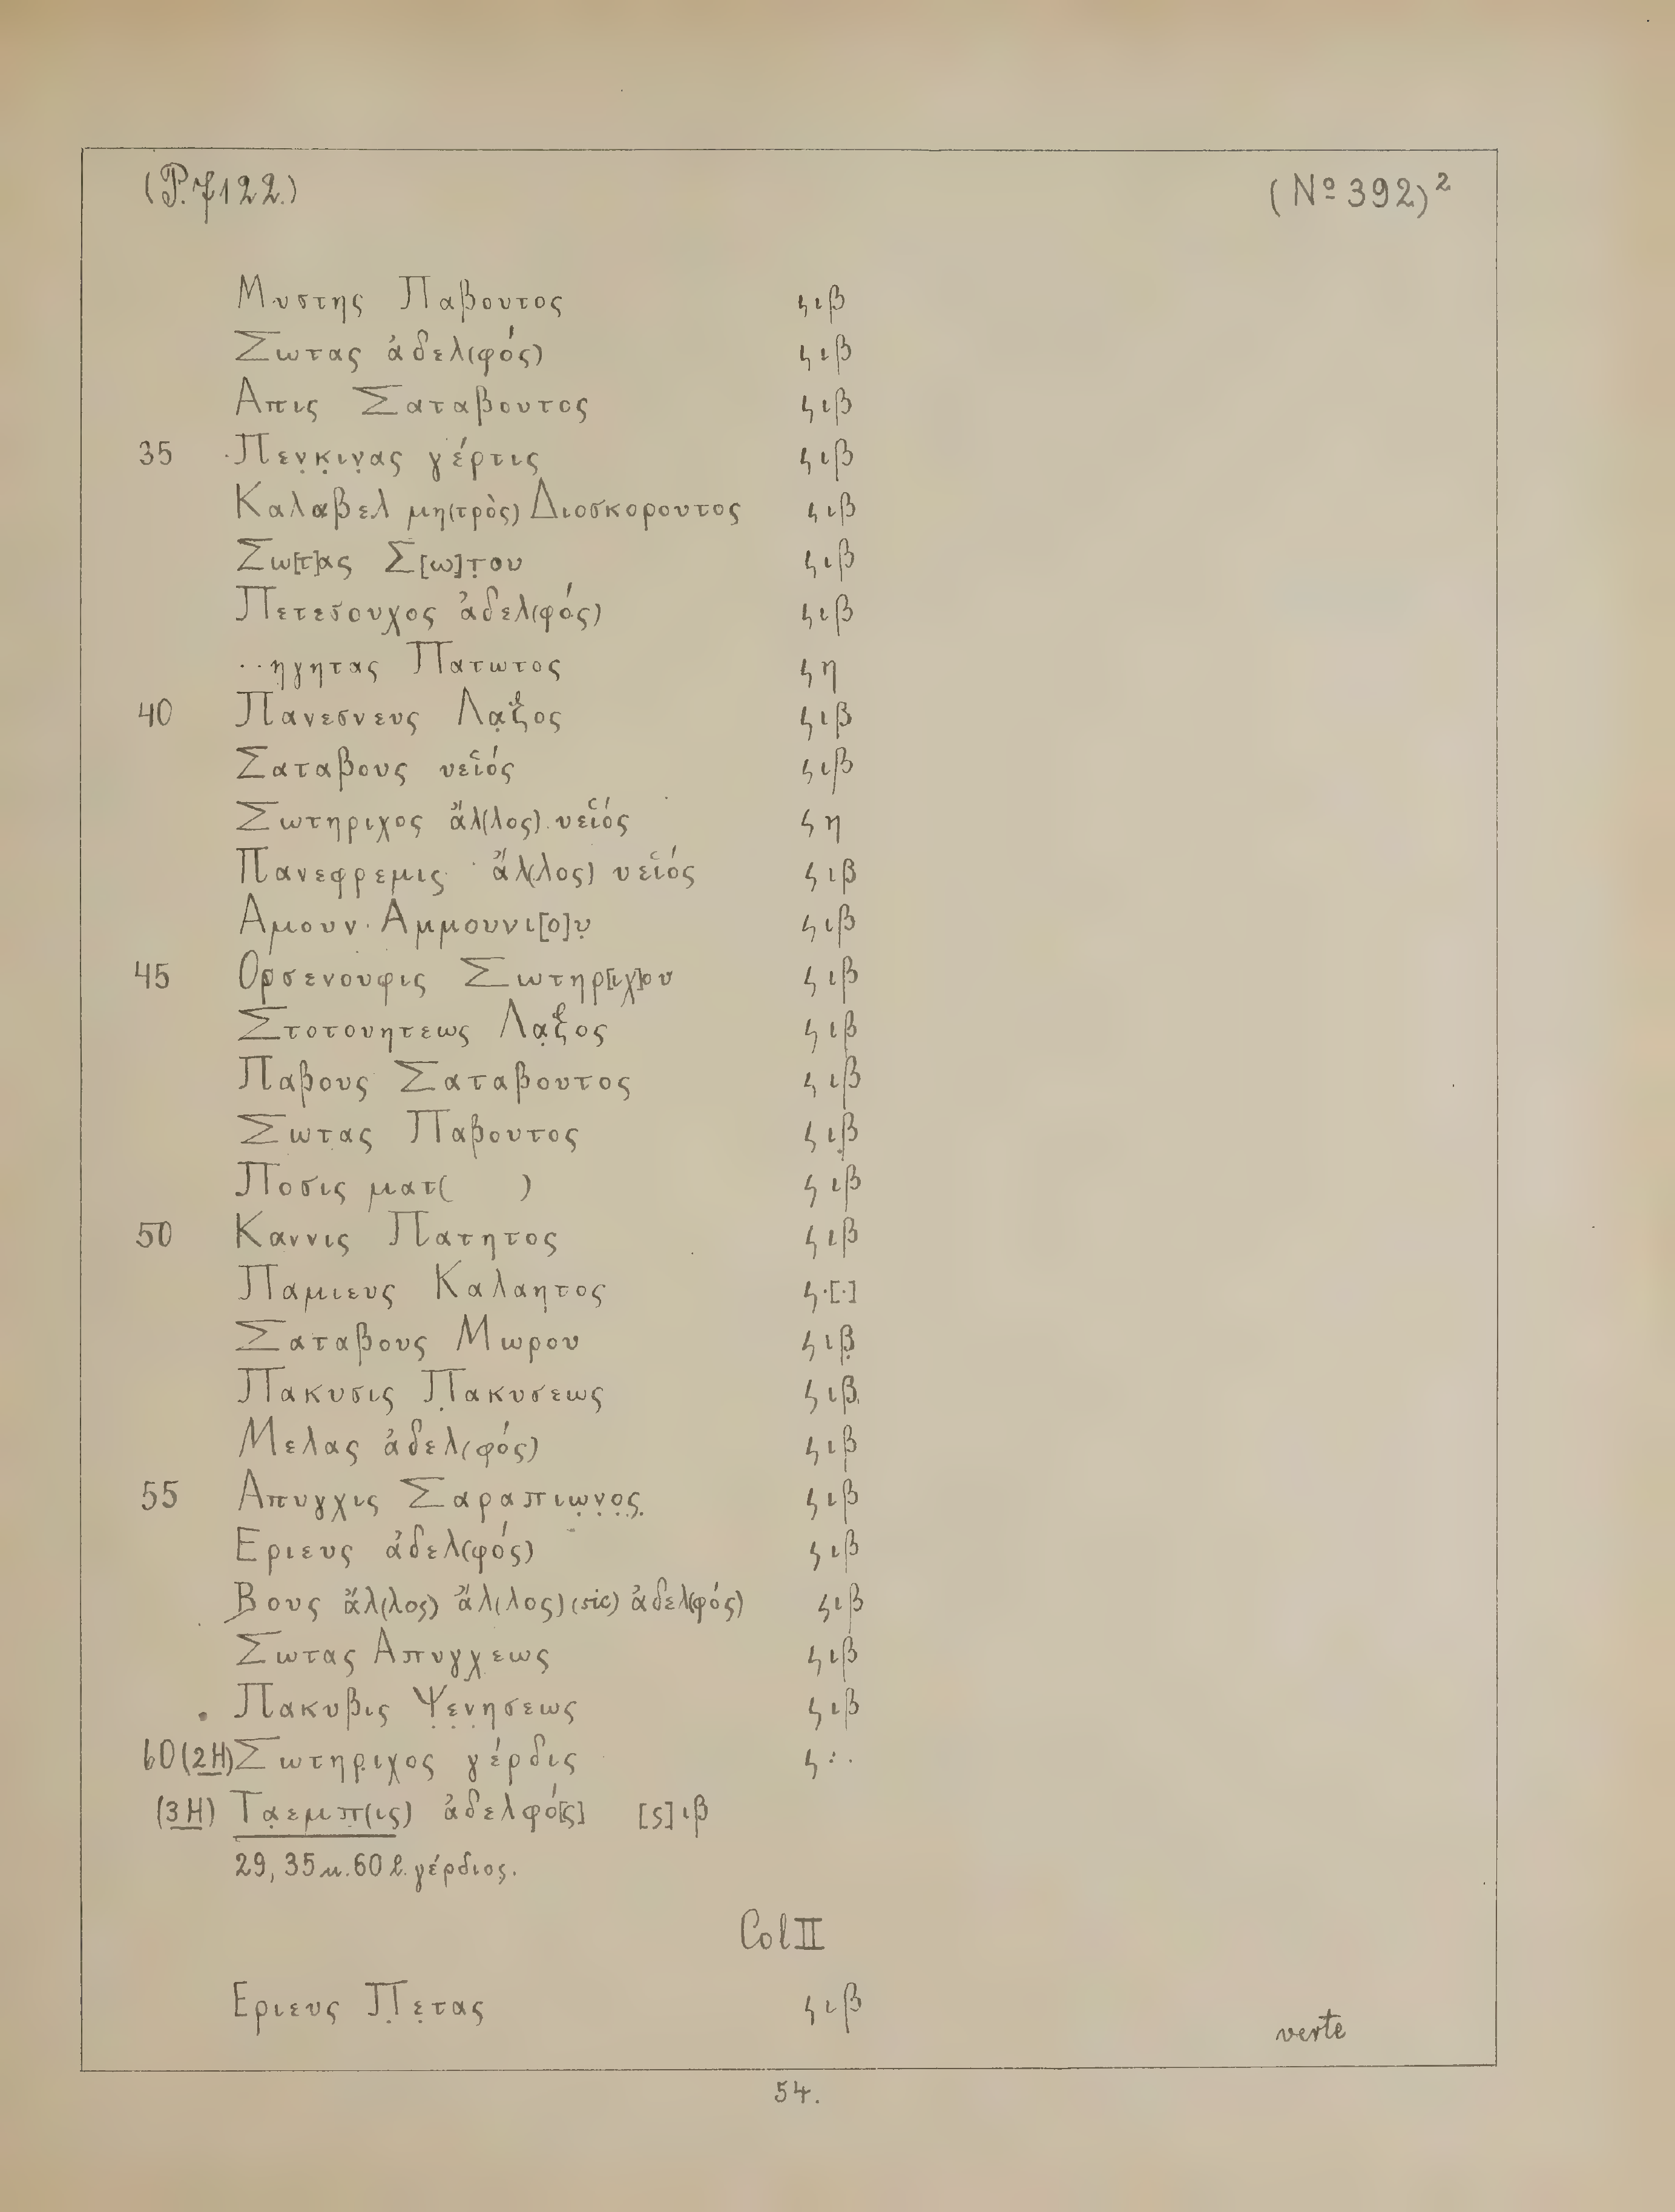 (P. 7122.) (Nº 392)²
Μυστης Παβουτος ϛ ιβ
Σωτας ἀδελ(φός) ϛ ιβ
Απις Σαταβουτος ϛ ιβ
35 Πεν̣κ̣ιν̣ας γέρτις ϛ ιβ
Καλαβελ μη(τρὸς) Διοσκορουτος ϛ ιβ
Σω[τ]ας Σ[ω]τ̣ου ϛ ιβ
Πετεσουχος ἀδελ(φός) ϛ ιβ
..ηγητας Πατωτος ϛ η
40 Πανεσνευς Λα̣ξος ϛ ιβ
Σαταβους υεἱός ϛ ιβ
Σωτηριχος ἄλ(λος) υεἱός ϛ η
Πανεφρεμις ἄλ(λος) υεἱός ϛ ιβ
Αμουν Αμμουνι[ο]υ̣ ϛ ιβ
45 Ορσενουφις Σωτηρ[ιχ]ου ϛ ιβ
Στοτουητεως Λα̣ξος ϛ ιβ
Παβους Σαταβουτος ϛ ιβ
Σωτας Παβουτος ϛ ιβ̣
Ποσις ματ( ) ϛ ιβ
50 Καννις Πατητος ϛ ιβ
Παμιευς Καλαη̣τος ϛ .[.]
Σαταβους Μωρου ϛ ιβ̣
Πακυσις Π̣ακυσεως ϛ ιβ
Μελας ἀδελ(φός) ϛ ιβ
55 Απυγχις Σαραπιω̣ν̣ο̣ς̣ ϛ ιβ
Εριευς ἀδελ(φός) ϛ ιβ
Βους ἄλ(λος) ἄλ(λος) (sic) ἀδελ(φός) ϛ ιβ
Σωτας Απυγχεως ϛ ιβ
Πακυβις Ψ̣ε̣ν̣ησεως ϛ ιβ
60 (2H) Σωτηρ̣ιχος γέρδις ϛ ..
(3H) Τα̣εμπ̣(ις) ἀδελφό[ς] [ϛ] ιβ
29, 35 u. 60 l. γέρδιος.
Col II
Εριευς Π̣ε̣τας ϛ ιβ
verte
54.